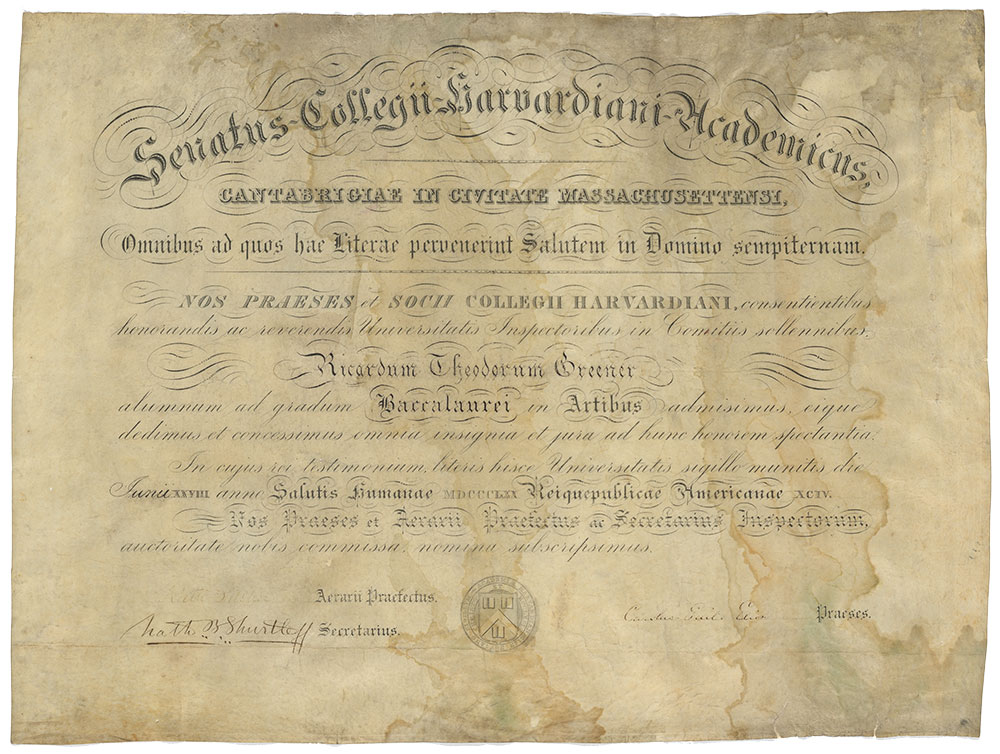 Senatus-Collegii-Harvardiani-Academicus,
CANTABRIGIAE IN CIVITATE MASSACHUSETTENSI,
Omnibus ad quos hae Literae pervenerint Salutem in Domino sempiternam.
NOS PRAESES et SOCII COLLEGII HARVARDIANI, consentientibus
honorandis ac reverendis Universitatis Inspectoribus in Comitiis sollennibus,
Ricardum Theodorum Greener
alumnum ad gradum Baccalaurei in Artibus admisimus, eique
dedimus et concessimus omnia insignia et jura ad hunc honorem spectantia.
In cujus rei testimonium, literis hisce, Universitatis sigillo munitis die
Junii XXVIII anno Salutis Humanae MDCCCLXX Reique publicae Americanae XCIV.
Nos Praeses et Aerarii Praefectus ac Secretarius Inspectorum,
auctoritate nobis commissa, nomina subscripsimus.
Aerarii Praefectus.
Nath B Shurtleff Secretarius.
Praeses.